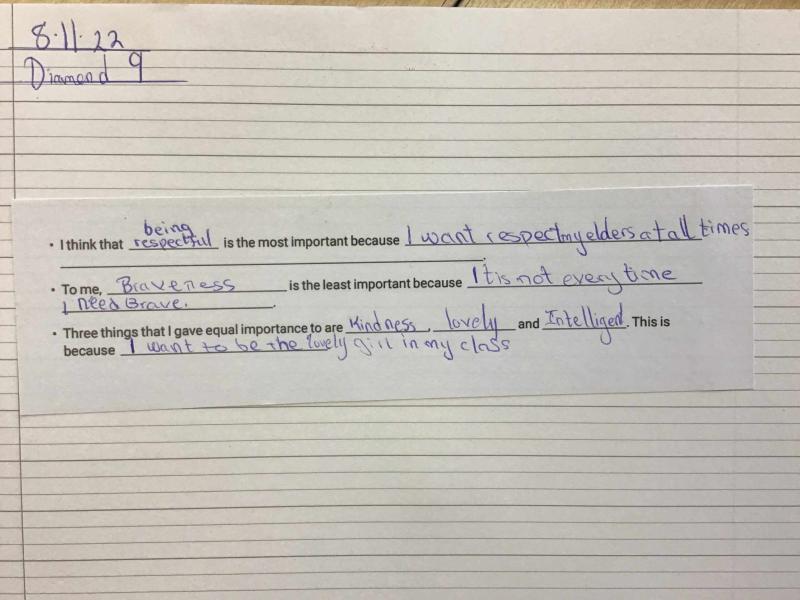 8.11.22
Diamond 9
being
• I think that respectful is the most important because I want respect my elders at all times
.
• To me, Braveness is the least important because It is not every time
I need Brave. .
• Three things that I gave equal importance to are Kindness, lovely and Intelligent. This is
because I want to be the lovely girl in my class